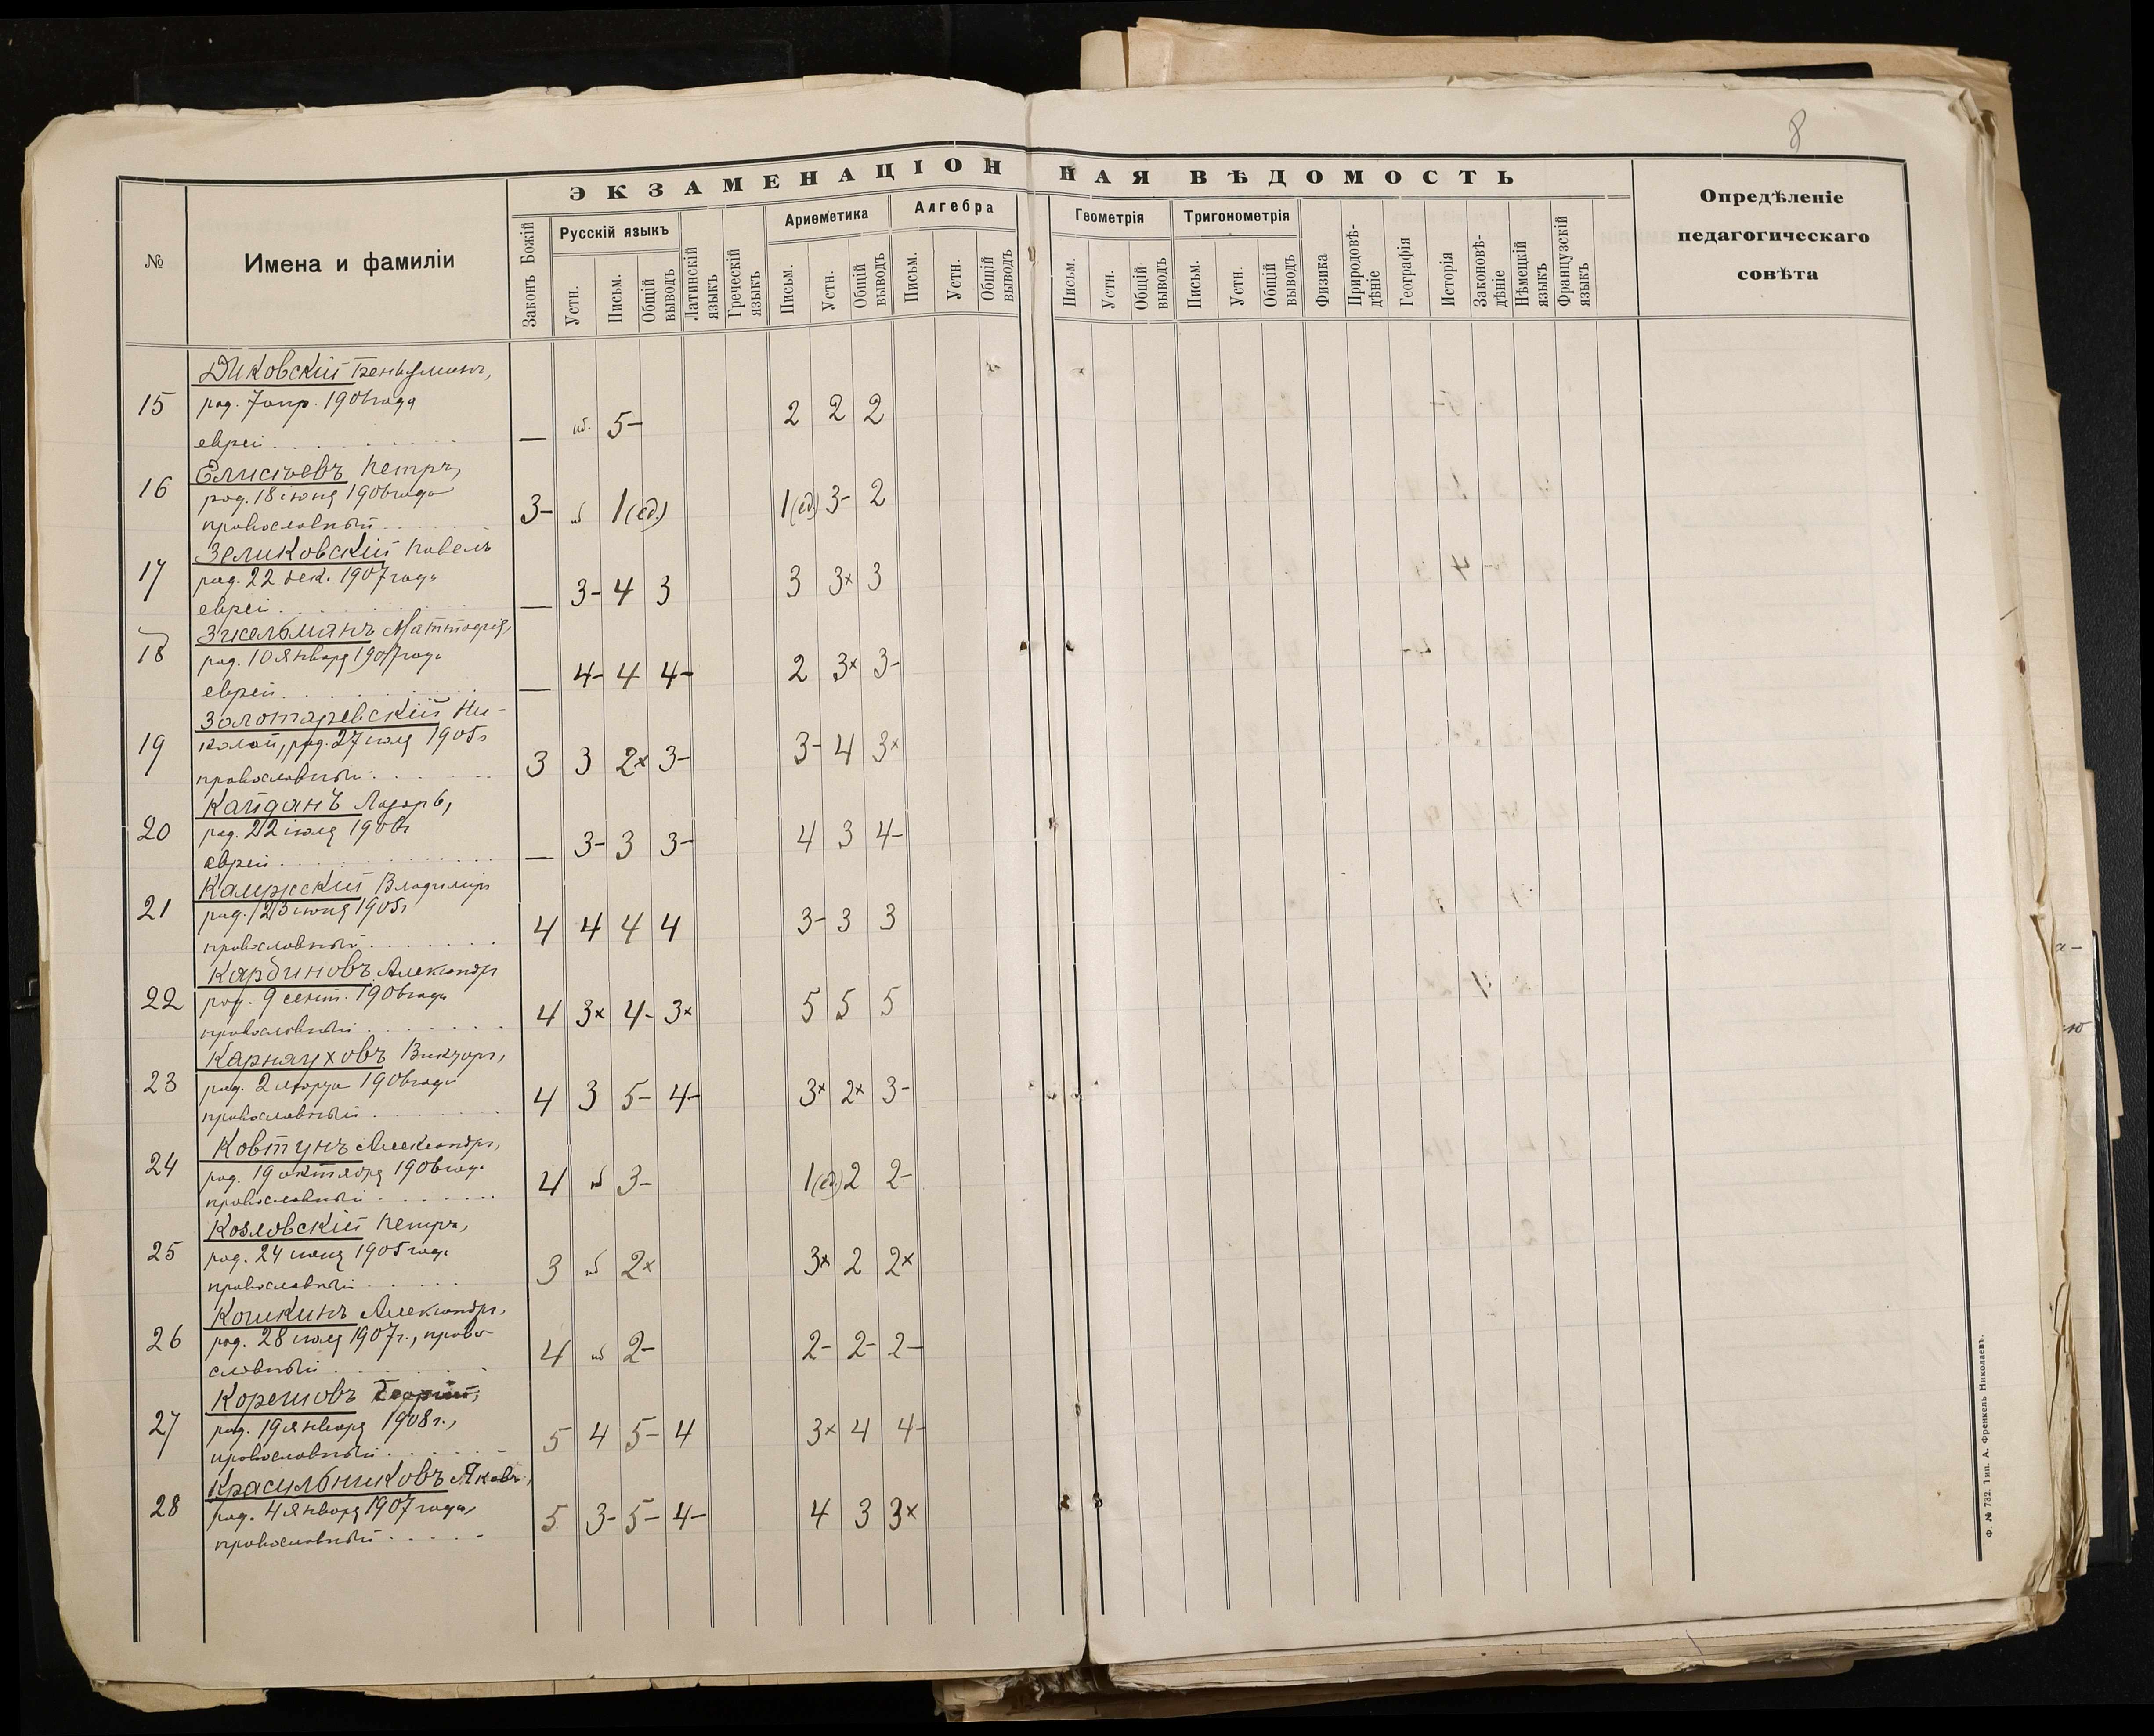 8
ЭКЗАМЕНАЦІОННАЯ ВѢДОМОСТЬ
№
Имена и фамиліи
Законъ Божій
Русскій языкъ
Устн.
Письм.
Общій выводъ
Латинскій языкъ
Греческій языкъ
Ариѳметика
Письм.
Устн.
Общій выводъ
Алгебра
Письм.
Устн.
Общій выводъ
Геометрія
Письм.
Устн.
Общій выводъ
Тригонометрія
Письм.
Устн.
Общій выводъ
Физика
Природовѣ-
дѣніе
Географія
Исторія
Законовѣ-
дѣніе
Нѣмецкій языкъ
Французскій языкъ
Опредѣленіе
педагогическаго
совѣта
Диковскій Веньяминъ,
15 род. 7 апр. 1906 года
еврей — нб. 5- 2 2 2
Елисѣевъ Петръ,
16 род. 18 іюня 1906 года
православный 3- нб 1(ед.) 1(ед.) 3- 2
Зеликовскій Павелъ
17 род. 22 дек. 1907 года
еврей — 3- 4 3 3 3× 3
Зисельманъ
18 род. 10 января 1907 года
еврей — 4- 4 4- 2 3× 3-
Золотаревскій Ни-
19 колай, род. 27 1905 г
православный 3 3 2× 3- 3- 4 3×
Кайданъ Лазарь,
20 род. 22 іюля 1906 г
еврей — 3- 3 3- 4 3 4-
Калужскій Владиміръ
21 род. 23 іюня 1905 г
православный 4 4 4 4 3- 3 3
Карбиновъ Александръ
22 род. 9 сент. 1906 года
православный 4 3× 4- 3× 5 5 5
Карнауховъ Викторъ,
23 род. 2 марта 1906 года
православный 4 3 5- 4- 3× 2× 3-
Ковтунъ Александръ,
24 род. 19 октября 1906 года
православный 4 нб 3- 1(ед.) 2 2-
Козловскій Петръ,
25 род. 24 1905 года
православный 3 нб 2× 3× 2 2×
Кошкинъ Александръ,
26 род. 28 1907 г., право-
славный 4 нб 2- 2- 2- 2-
Корешовъ Георгій,
27 род. 19 января 1908 г.,
православный 5 4 5- 4 3× 4 4-
Красильниковъ Яковъ,
28 род. 4 января 1907 года,
православный 5 3- 5- 4- 4 3 3×
Ф. № 732. Тип. А. Френкель Николаевъ.